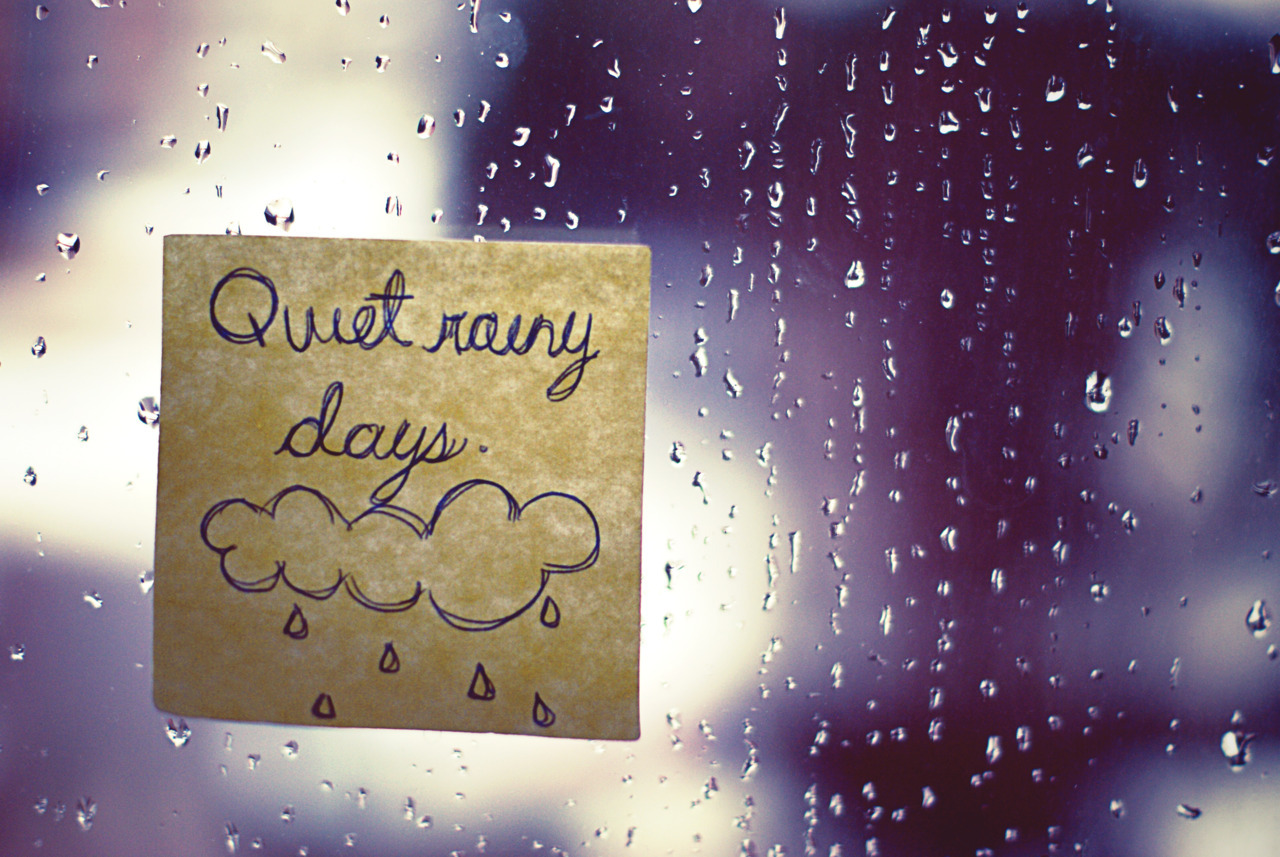 Quiet rainy
days.